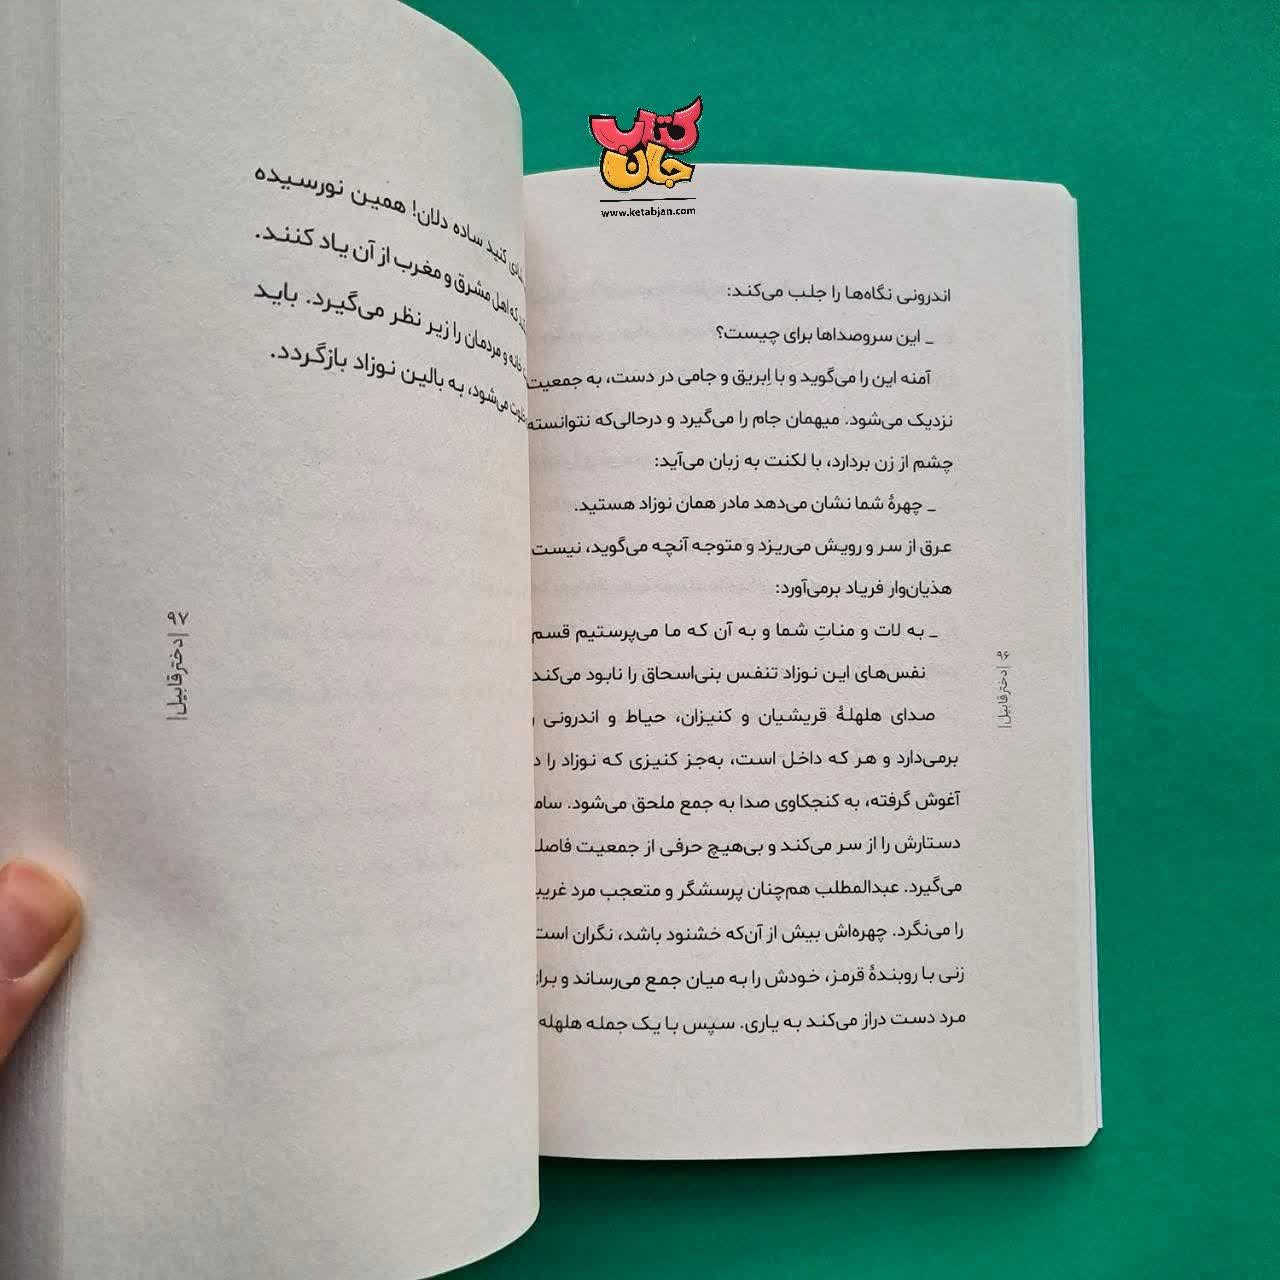 کتاب جان
www.ketabjan.com
اندرونی نگاه‌ها را جلب می‌کند:
_ این سروصداها برای چیست؟
آمنه این را می‌گوید و با اِبریق و جامی در دست، به جمعیت
نزدیک می‌شود. میهمان جام را می‌گیرد و درحالی‌که نتوانسته
چشم از زن بردارد، با لکنت به زبان می‌آید:
_ چهرهٔ شما نشان می‌دهد مادر همان نوزاد هستید.
عرق از سر و رویش می‌ریزد و متوجه آنچه می‌گوید، نیست
هذیان‌وار فریاد برمی‌آورد:
_ به لات و مناتِ شما و به آن که ما می‌پرستیم قسم
نفس‌های این نوزاد تنفس بنی‌اسحاق را نابود می‌کند
صدای هلهلهٔ قریشیان و کنیزان، حیاط و اندرونی
برمی‌دارد و هر که داخل است، به‌جز کنیزی که نوزاد را
آغوش گرفته، به کنجکاوی صدا به جمع ملحق می‌شود.
دستارش را از سر می‌کند و بی‌هیچ حرفی از جمعیت
می‌گیرد. عبدالمطلب هم‌چنان پرسشگر و متعجب مرد
را می‌نگرد. چهره‌اش بیش از آن‌که خشنود باشد، نگران است
زنی با روبندهٔ قرمز، خودش را به میان جمع می‌رساند و
مرد دست دراز می‌کند به یاری. سپس با یک جمله هلهله
۹۶ |دختر قابیل|
کنید ساده دلان! همین نورسیده
که اهل مشرق و مغرب از آن یاد کنند.
خانه و مردمان را زیر نظر می‌گیرد. باید
می‌شود، به بالین نوزاد بازگردد.
۹۷ |دختر قابیل|